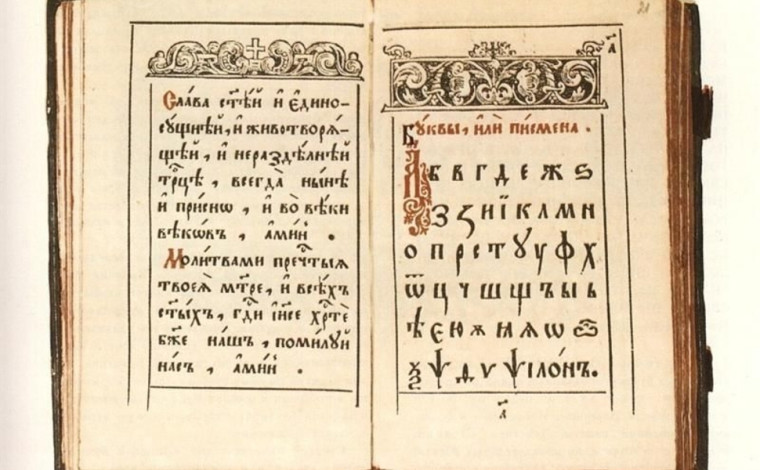 Сла́ва ст҃ѣ́й и҆ є҆дино-
сꙋ́щнѣй, и҆ животворѧ́-
щѣй, и҆ нераздѣ́лнѣй
трⷪ҇цѣ, всегда̀ ны́нѣ
и҆ при́снѡ, и҆ во̀ вѣ́ки
вѣкѡ́въ, а҆ми́нь.
Моли́твами пречⷭ҇тыѧ
твоеѧ̀ мт҃ре, и҆ всѣ́хъ
ст҃ы́хъ, гдⷭ҇и і҆и҃се хрⷭ҇тѐ
бж҃е на́шъ, поми́лꙋй
на́съ, а҆ми́нь.
Бꙋ́квы, и҆лѝ пи́смена.
А б в г д е ж ѕ
з ꙁ и ї к л м н
о п р с т ꙋ у ф х
ѿ ц ч ш щ ъ ы ь
ѣ є ю ѫ ꙗ ѧ ѡ
ѯ ѱ ѳ ѵ ѱило́нъ.